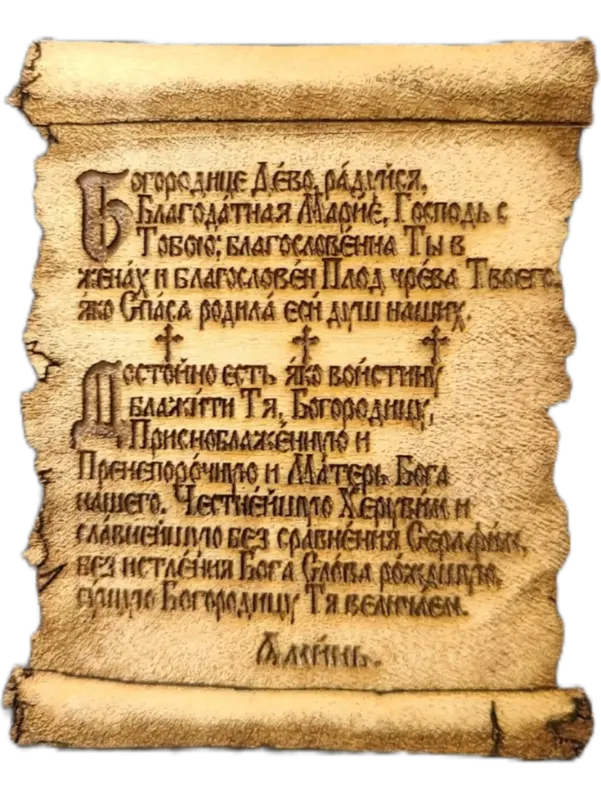 Богородице Де́во, ра́дуйся,
Благода́тная Мари́е, Господь с
Тобою; благослове́нна Ты в
жена́х и благослове́н Плод чре́ва Твоего,
я́ко Спа́са родила́ еси́ душ наших.
Досто́йно есть я́ко вои́стину
блажи́ти Тя, Богородицу,
Присноблаже́нную и
Пренепоро́чную и Ма́терь Бога
нашего. Честне́йшую Херуви́м и
сла́внейшую без сравне́ния Серафи́м,
без истле́ния Бога Сло́ва ро́ждшую,
су́щую Богородицу Тя велича́ем.
Ами́нь.